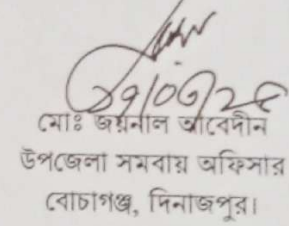 মোঃ জয়নাল আবেদীন
উপজেলা সমবায় অফিসার
বোচাগঞ্জ, দিনাজপুর।